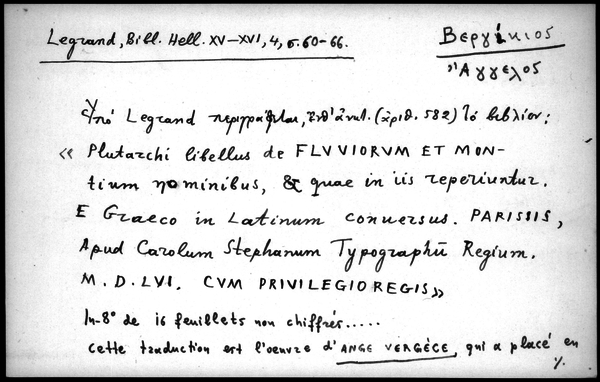 Legrand, Bibl. Hell. XV–XVI, 4, σ. 60-66.
Βεργίκιος
Ἄγγελος
Ὑπό Legrand περιγράφεται, ἔνθ' ἀνωτ. (ἀριθ. 582) τό βιβλίον:
« Plutarchi libellus de FLVVIORVM ET MON-
tium nominibus, & quae in iis reperiuntur.
E Graeco in Latinum conuersus. PARISIIS,
Apud Carolum Stephanum Typographũ Regium.
M. D. LVI. CVM PRIVILEGIO REGIS »
In-8° de 16 feuillets non chiffrés.....
Cette traduction est l'oeuvre d'ANGE VERGÈCE, qui a placé en
٪.